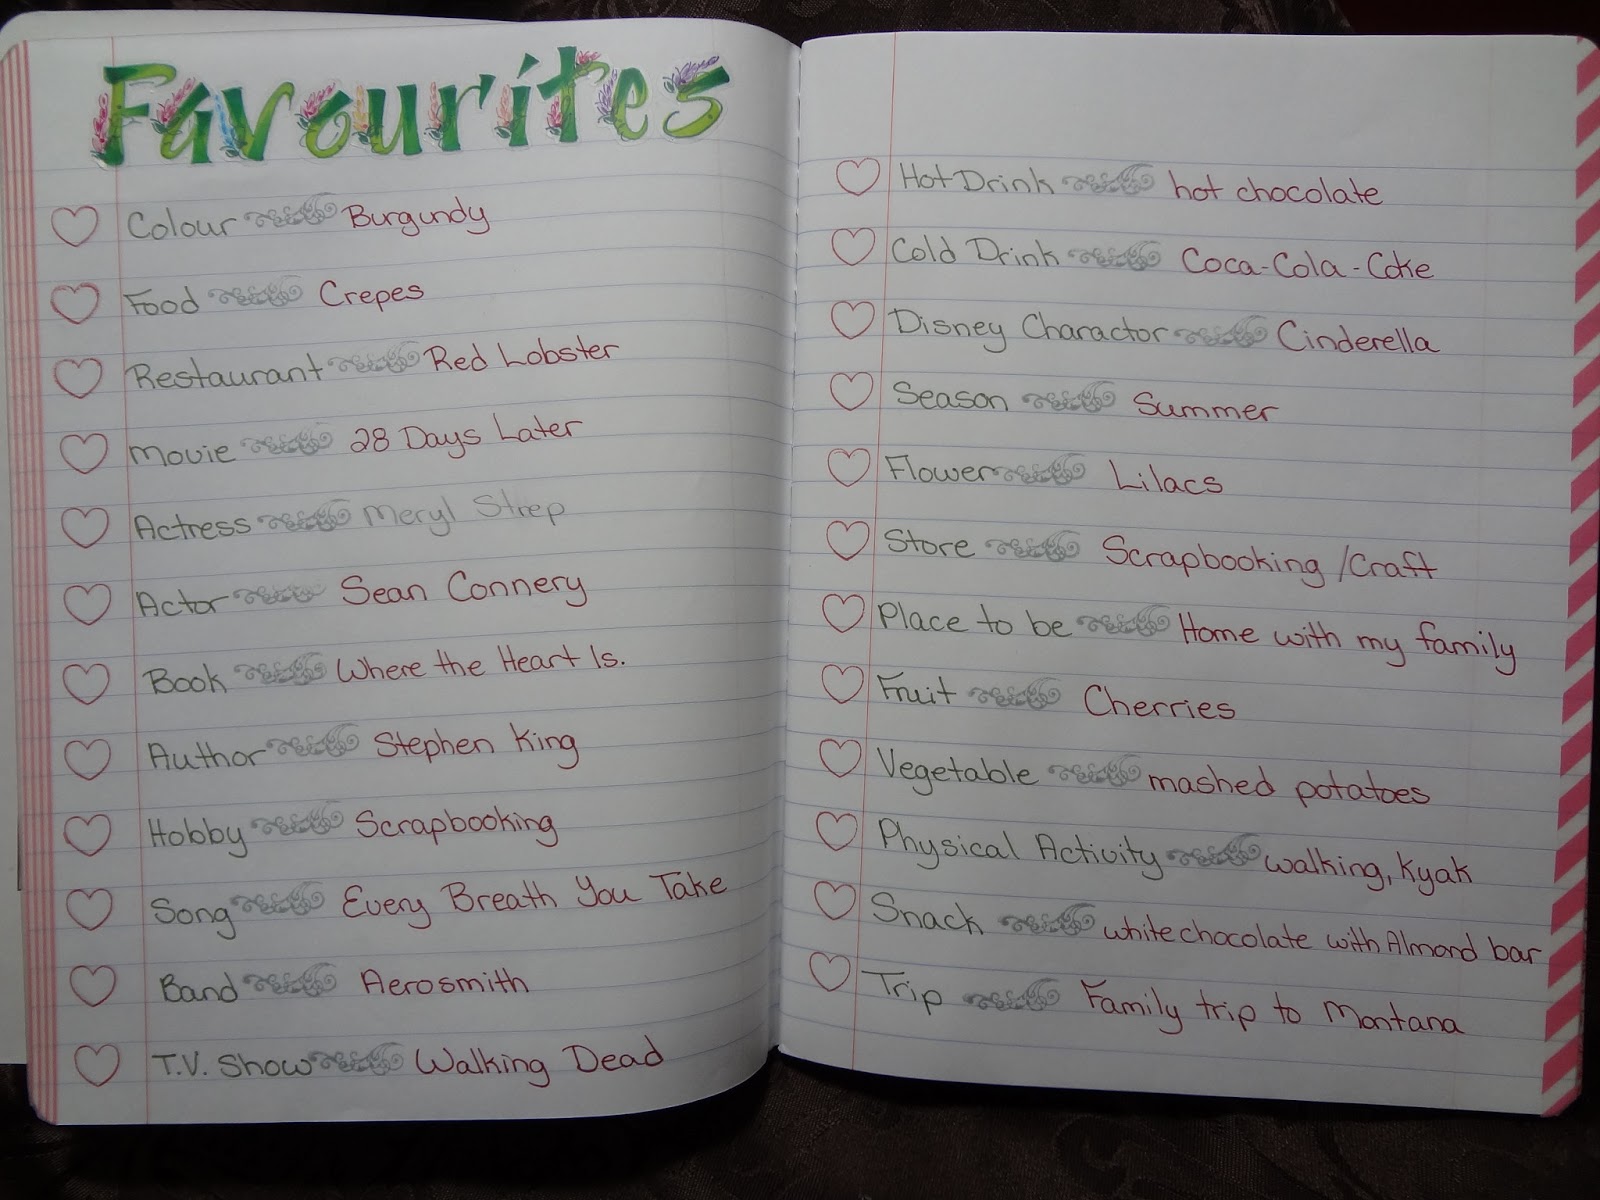 Favourites
Colour Burgundy
Food Crepes
Restaurant Red Lobster
Movie 28 Days Later
Actress Meryl Strep
Actor Sean Connery
Book Where the Heart Is.
Author Stephen King
Hobby Scrapbooking
Song Every Breath You Take
Band Aerosmith
T.V. Show Walking Dead
Hot Drink hot chocolate
Cold Drink Coca-Cola-Coke
Disney Charactor Cinderella
Season Summer
Flower Lilacs
Store Scrapbooking /Craft
Place to be Home with my family
Fruit Cherries
Vegetable mashed potatoes
Physical Activity walking, Kyak
Snack white chocolate with Almond bar
Trip Family trip to Montana